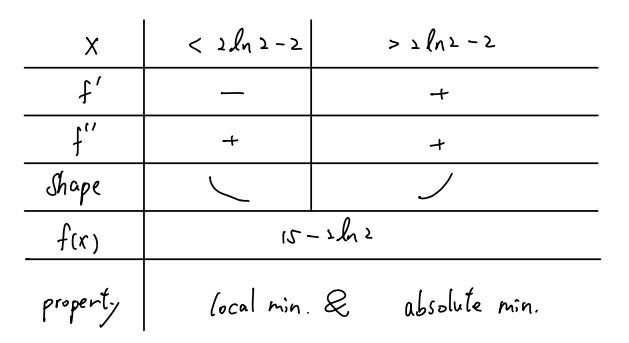 x < 2ln2-2 > 2ln2-2
f' - +
f'' + +
Shape
f(x) 15-2ln2
property local min. & absolute min.